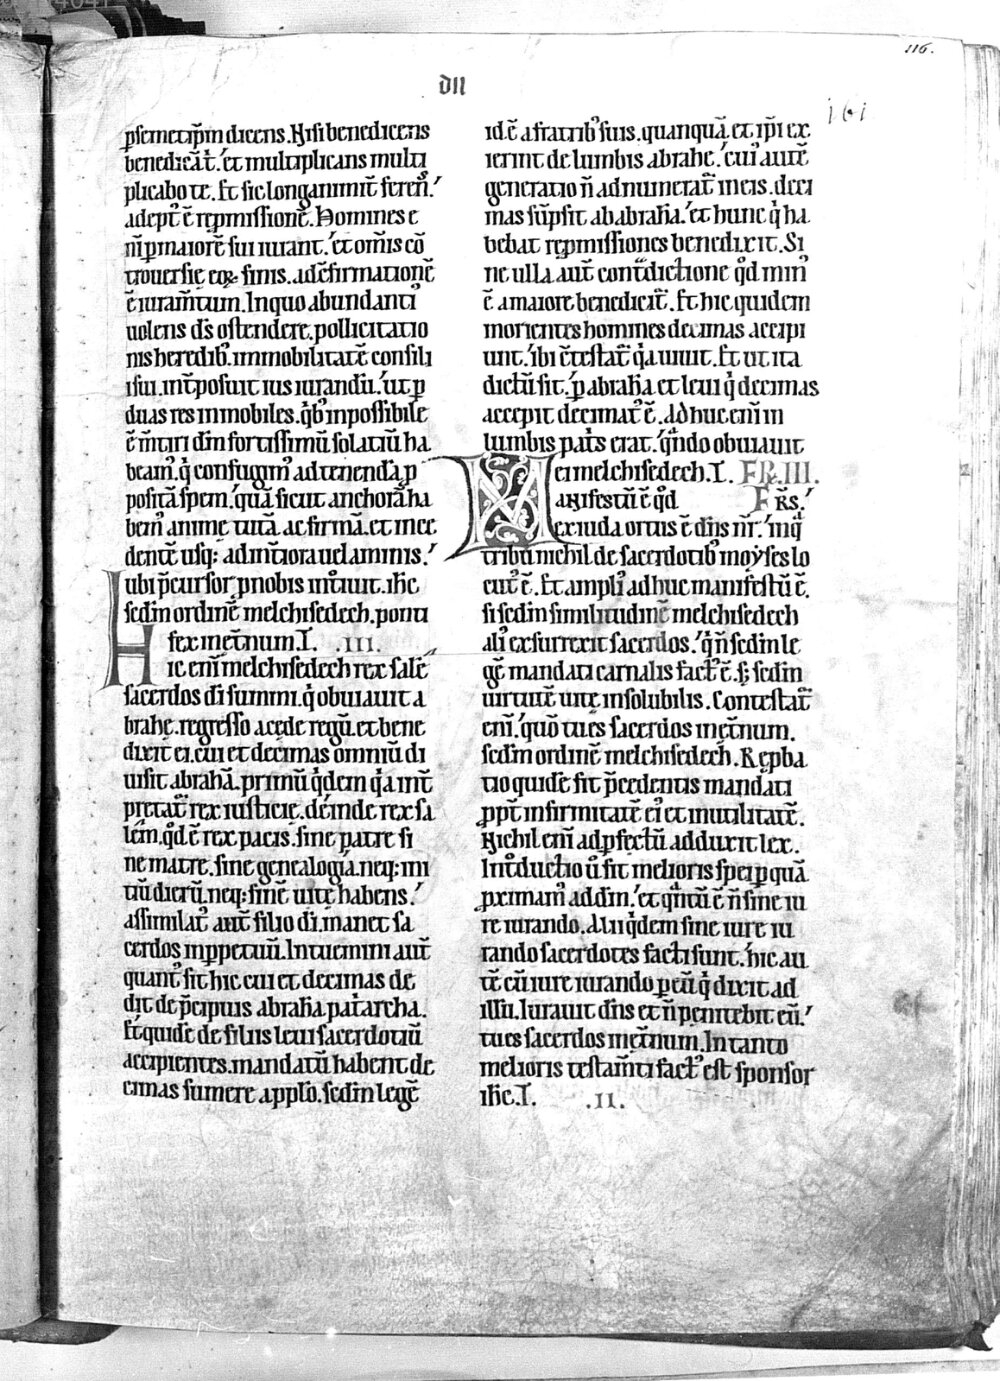 116.
dn
161
ꝑsemetip̄m dicens. Nisi benedicens
benedicā t̄. et multiplicans multi
plicabo te. Et sic longanimit̄ ferens̄.
adept᷒ ē rep̱missionē. Homines e
ni̅ ꝑ maiorē sui iurant. et om̄is cō
trouersie eoꝝ finis. ad cfirmationē
ē iuram̄tum. In quo abundanti᷒
uolens ds̄ ostendere. pollicitatio
nis heredib᷒. immobilitatē consili
i sui. int̄posuit ius iurandū. ut ꝑ
duas res inmobiles. qib᷒ inpossibile
ē m̄tiri dm̄ fortissimū solatiū ha
beam᷒. qi confugim᷒ ad tenendā ꝓ
positā spem. quā sicut anchorā ha
bem᷒ anime tutā ac firmā. et ince
dentē usq; ad int̄iora uelaminis.
ubi p̄cursor ꝓ nobis int̄uit. ihc̄
scd̄m ordinē melchisedech. ponti
fex inet̄num. I. .III.
Hic eni̅ melchisedech rex salē
sacerdos dī summi. qi obuiauit a
brahe. regresso a cede regū. et bene
dixit ei. cui et decimas omniū di
uisit abrahā. primū qidem qia int̄
pretat᷒ rex iusticie. deinde rex sa
lēm. qd̄ ē rex pacis. sine patre si
ne matre. sine genealogia. neq; ini
tiū dierū. neq; finē uite habens.
assimilat᷒ aut̄ filio dī. manet sa
cerdos inꝑpetuū. Intuemini aut̄
quant᷒ sit hic cui et decimas de
dit de p̄cipuis abrahā pat̄archa.
Et quidē de filiis leui sacerdotiū
accipientes. mandatū habent de
cimas sumere a pplo. scd̄m legē
id ē a fratrib᷒ suis. quanquā et ip̄i ex
ierint de lumbis abrahe. cui᷒ autē
generatio n̄ adnumerat᷒ in eis. deci
mas sūpsit ab abraha. et hunc qi ha
bebat rep̱missiones benedixit. Si
ne ulla aut̄ cont̄dictione qd̄ min᷒
ē a maiore benedicit᷒. Et hic quidem
morientes homines decimas accipi
unt. ibi c̄testat᷒ qia uiuit. Et ut ita
dictū sit. ꝑ abrahā. et leui qi decimas
accepit decimat᷒ ē. Adhuc eni̅ in
lumbis pat̄s erat. qn̄do obuiauit
ei melchisedech. I. FR̄. III.
Manifestū ē qd̄ FR̄S.
ex iuda ortus ē dn̄s nr̄. in qa
tribu nichil de sacerdotib᷒ moyses lo
cut᷒ ē. Et ampli᷒ adhuc manifestū ē.
si scd̄m similitudinē melchisedech
ali᷒ exsurrexit sacerdos. qi n̄ scd̄m le
gē mandati carnalis fact᷒ ē. s; scd̄m
uirtutē uite insolubilis. Contestat᷒
eni̅. qm̄ tu es sacerdos inet̄num.
scd̄m ordinē melchisedech. Rep̱ba
tio quidē fit p̄cedentis mandati
ꝓpt̄ infirmitatē ei᷒ et inutilitatē.
Nichil eni̅ ad ꝑfectū adduxit lex.
Int᷒ductio ū fit melioris spei ꝑ quā
ꝓximam᷒ ad dm̄. et qn̄tū ē n̄ sine iu
re iurando. Alii qidem sine iure iu
rando sacerdotes facti sunt. hic au
tē cū iure iurando ꝑ eū qi dixit ad
illū. Iurauit dn̄s et n̄ penitebit eū.
tu es sacerdos inet̄num. In tanto
melioris testam̄ti fact᷒ est sponsor
ihc̄. I. .II.